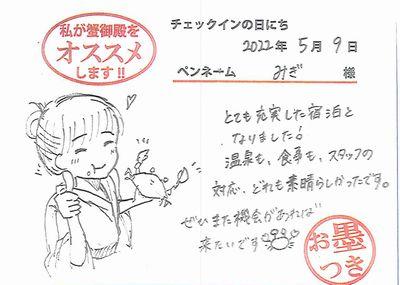 私が蟹御殿を
オススメ
します!!
チェックインの日にち
2022年 5月 9日
ペンネーム みぎ 様
とても充実した宿泊と
なりました!
温泉も、食事も、スタッフの
対応、どれも素晴らしかったです。
ぜひまた機会があれば
来たいです
お墨
つき